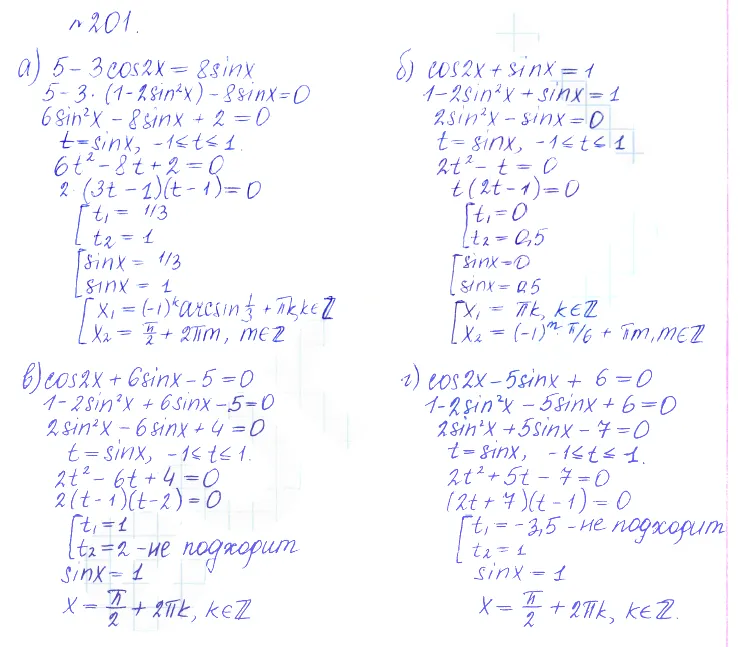 №201.
а) 5 - 3cos2x = 8sinx
5 - 3 · (1 - 2sin²x) - 8sinx = 0
6sin²x - 8sinx + 2 = 0
t = sinx, -1 ≤ t ≤ 1.
6t² - 8t + 2 = 0
2 · (3t - 1)(t - 1) = 0
[ t₁ = 1/3
t₂ = 1
[ sinx = 1/3
sinx = 1
[ x₁ = (-1)ᵏ arcsin 1/3 + πk, k∈ℤ
x₂ = π/2 + 2πm, m∈ℤ
б) cos2x + sinx = 1
1 - 2sin²x + sinx = 1
2sin²x - sinx = 0
t = sinx, -1 ≤ t ≤ 1
2t² - t = 0
t(2t - 1) = 0
[ t₁ = 0
t₂ = 0,5
[ sinx = 0
sinx = 0.5
[ x₁ = πk, k∈ℤ
x₂ = (-1)ᵐ · π/6 + πm, m∈ℤ
в) cos2x + 6sinx - 5 = 0
1 - 2sin²x + 6sinx - 5 = 0
2sin²x - 6sinx + 4 = 0
t = sinx, -1 ≤ t ≤ 1.
2t² - 6t + 4 = 0
2(t - 1)(t - 2) = 0
[ t₁ = 1
t₂ = 2 - не подходит
sinx = 1
x = π/2 + 2πk, k∈ℤ
г) cos2x - 5sinx + 6 = 0
1 - 2sin²x - 5sinx + 6 = 0
2sin²x + 5sinx - 7 = 0
t = sinx, -1 ≤ t ≤ 1.
2t² + 5t - 7 = 0
(2t + 7)(t - 1) = 0
[ t₁ = -3,5 - не подходит
t₂ = 1
sinx = 1
x = π/2 + 2πk, k∈ℤ.